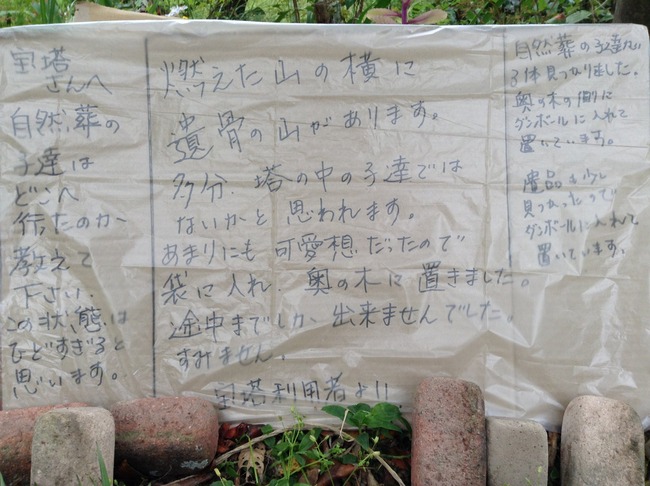 宝塔
さんへ
自然葬の
子達は
どこへ
行たのか
教えて
下さい.
この状態は
ひどすぎると
思います。
燃えた山の横に
遺骨の山があります。
多分.塔の中の子達では
ないかと思われます。
あまりにも可愛想だったので
袋に入れ.奥の木に置きました。
途中までしか出来ませんでした。
すみません。
宝塔利用者より
自然葬の子達が
3体見つかりました。
奥の木の側に
ダンボールに入れて
置いています。
遺品も少し
見つかったので
ダンボールに入れて
置いています。